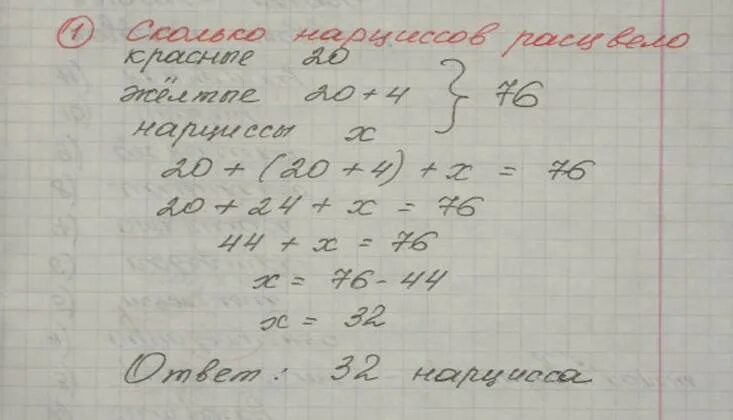 ① Сколько нарциссов расцвело
красные 20
жёлтые 20 + 4 } 76
нарциссы x
20 + (20 + 4) + x = 76
20 + 24 + x = 76
44 + x = 76
x = 76 - 44
x = 32
Ответ: 32 нарцисса